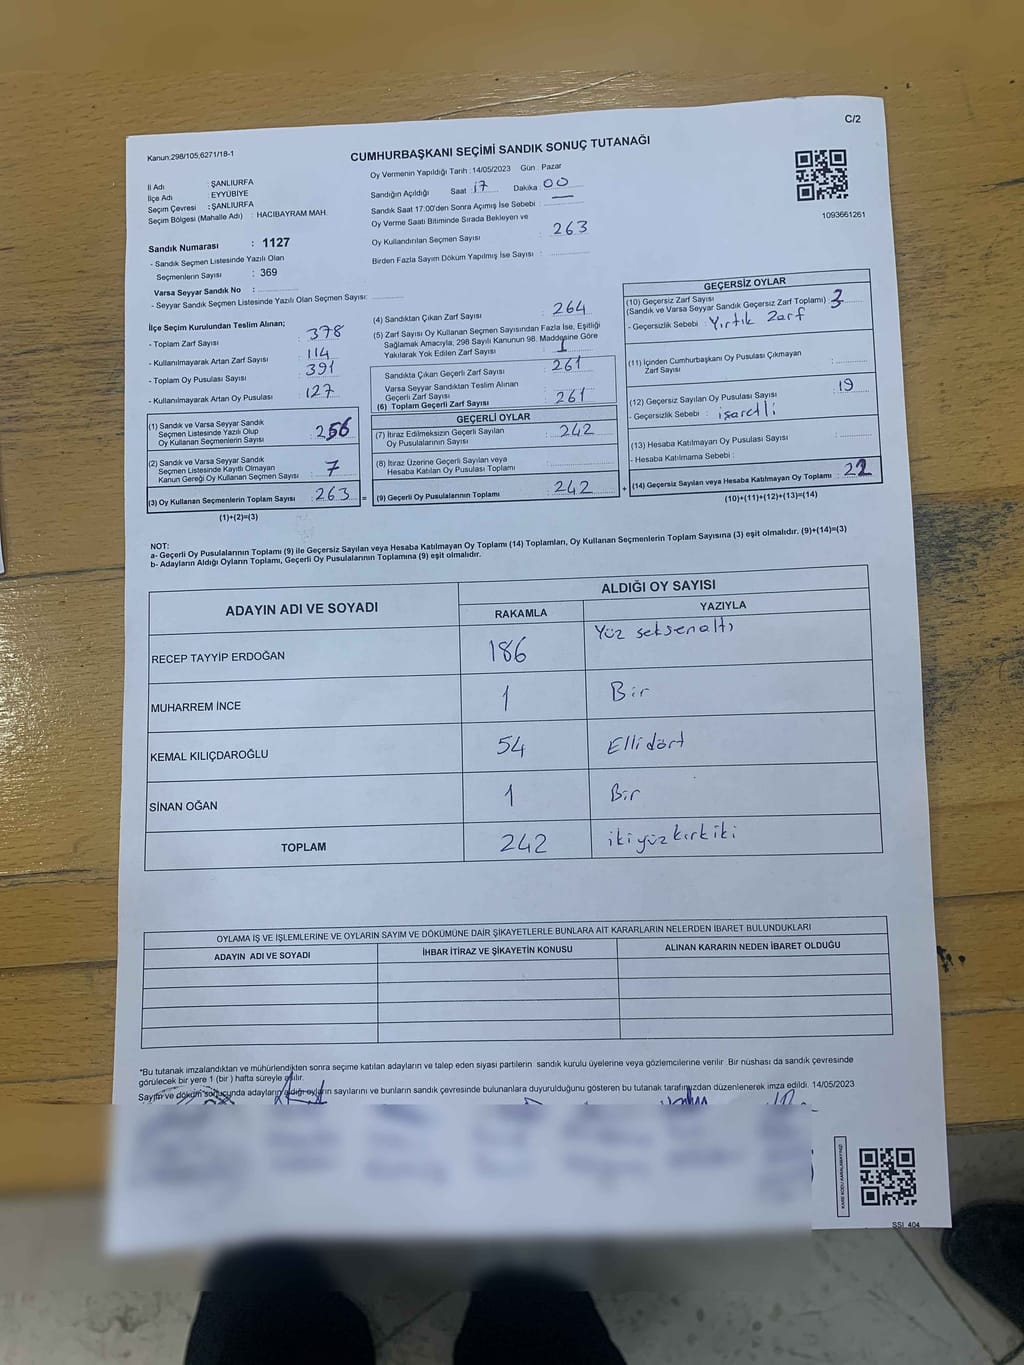 C/2
Kanun:298/105;6271/18-1
CUMHURBAŞKANI SEÇİMİ SANDIK SONUÇ TUTANAĞI
İl Adı : ŞANLIURFA
İlçe Adı : EYYÜBİYE
Seçim Çevresi : ŞANLIURFA
Seçim Bölgesi (Mahalle Adı) : HACIBAYRAM MAH.
Sandık Numarası : 1127
- Sandık Seçmen Listesinde Yazılı Olan
Seçmenlerin Sayısı : 369
Varsa Seyyar Sandık No :
- Seyyar Sandık Seçmen Listesinde Yazılı Olan Seçmen Sayısı:
Oy Vermenin Yapıldığı Tarih : 14/05/2023 Gün : Pazar
Sandığın Açıldığı Saat : 17 Dakika : 00
Sandık Saat 17:00'den Sonra Açımış İse Sebebi : —
Oy Verme Saati Bitiminde Sırada Bekleyen ve
Oy Kullandırılan Seçmen Sayısı : 263
Birden Fazla Sayım Döküm Yapılmış İse Sayısı :
1093661261
İlçe Seçim Kurulundan Teslim Alınan;
- Toplam Zarf Sayısı : 378
- Kullanılmayarak Artan Zarf Sayısı : 114
- Toplam Oy Pusulası Sayısı : 391
- Kullanılmayarak Artan Oy Pusulası : 127
(1) Sandık ve Varsa Seyyar Sandık
Seçmen Listesinde Yazılı Olup
Oy Kullanan Seçmenlerin Sayısı : 256
(2) Sandık ve Varsa Seyyar Sandık
Seçmen Listesinde Kayıtlı Olmayan
Kanun Gereği Oy Kullanan Seçmen Sayısı : 7
(3) Oy Kullanan Seçmenlerin Toplam Sayısı : 263 =
(1)+(2)=(3)
(4) Sandıktan Çıkan Zarf Sayısı : 264
(5) Zarf Sayısı Oy Kullanan Seçmen Sayısından Fazla İse, Eşitliği
Sağlamak Amacıyla, 298 Sayılı Kanunun 98. Maddesine Göre
Yakılarak Yok Edilen Zarf Sayısı : 1
Sandıkta Çıkan Geçerli Zarf Sayısı : 261
Varsa Seyyar Sandıktan Teslim Alınan
Geçerli Zarf Sayısı
(6) Toplam Geçerli Zarf Sayısı : 261
GEÇERLİ OYLAR
(7) İtiraz Edilmeksizin Geçerli Sayılan
Oy Pusulalarının Sayısı : 242
(8) İtiraz Üzerine Geçerli Sayılan veya
Hesaba Katılan Oy Pusulası Toplamı :
(9) Geçerli Oy Pusulalarının Toplamı : 242 +
GEÇERSİZ OYLAR
(10) Geçersiz Zarf Sayısı
(Sandık ve Varsa Seyyar Sandık Geçersiz Zarf Toplamı) : 3
- Geçersizlik Sebebi : Yırtık Zarf
(11) İçinden Cumhurbaşkanı Oy Pusulası Çıkmayan
Zarf Sayısı :
(12) Geçersiz Sayılan Oy Pusulası Sayısı : 19
- Geçersizlik Sebebi : işaretli
(13) Hesaba Katılmayan Oy Pusulası Sayısı :
- Hesaba Katılmama Sebebi :
(14) Geçersiz Sayılan veya Hesaba Katılmayan Oy Toplamı : 22
(10)+(11)+(12)+(13)=(14)
NOT:
a- Geçerli Oy Pusulalarının Toplamı (9) ile Geçersiz Sayılan veya Hesaba Katılmayan Oy Toplamı (14) Toplamları, Oy Kullanan Seçmenlerin Toplam Sayısına (3) eşit olmalıdır. (9)+(14)=(3)
b- Adayların Aldığı Oyların Toplamı, Geçerli Oy Pusulalarının Toplamına (9) eşit olmalıdır.
ADAYIN ADI VE SOYADI
ALDIĞI OY SAYISI
RAKAMLA YAZIYLA
RECEP TAYYİP ERDOĞAN 186 Yüz seksenaltı
MUHARREM İNCE 1 Bir
KEMAL KILIÇDAROĞLU 54 Ellidört
SİNAN OĞAN 1 Bir
TOPLAM 242 ikiyüzkırkiki
OYLAMA İŞ VE İŞLEMLERİNE VE OYLARIN SAYIM VE DÖKÜMÜNE DAİR ŞİKAYETLERLE BUNLARA AİT KARARLARIN NELERDEN İBARET BULUNDUKLARI
ADAYIN ADI VE SOYADI İHBAR İTİRAZ VE ŞİKAYETİN KONUSU ALINAN KARARIN NEDEN İBARET OLDUĞU
*Bu tutanak imzalandıktan ve mühürlendikten sonra seçime katılan adayların ve talep eden siyasi partilerin sandık kurulu üyelerine veya gözlemcilerine verilir. Bir nüshası da sandık çevresinde
görülecek bir yere 1 (bir ) hafta süreyle asılır.
Sayım ve döküm sonucunda adayların aldığı oyların sayılarını ve bunların sandık çevresinde bulunanlara duyurulduğunu gösteren bu tutanak tarafımızdan düzenlenerek imza edildi. 14/05/2023
SSI_404